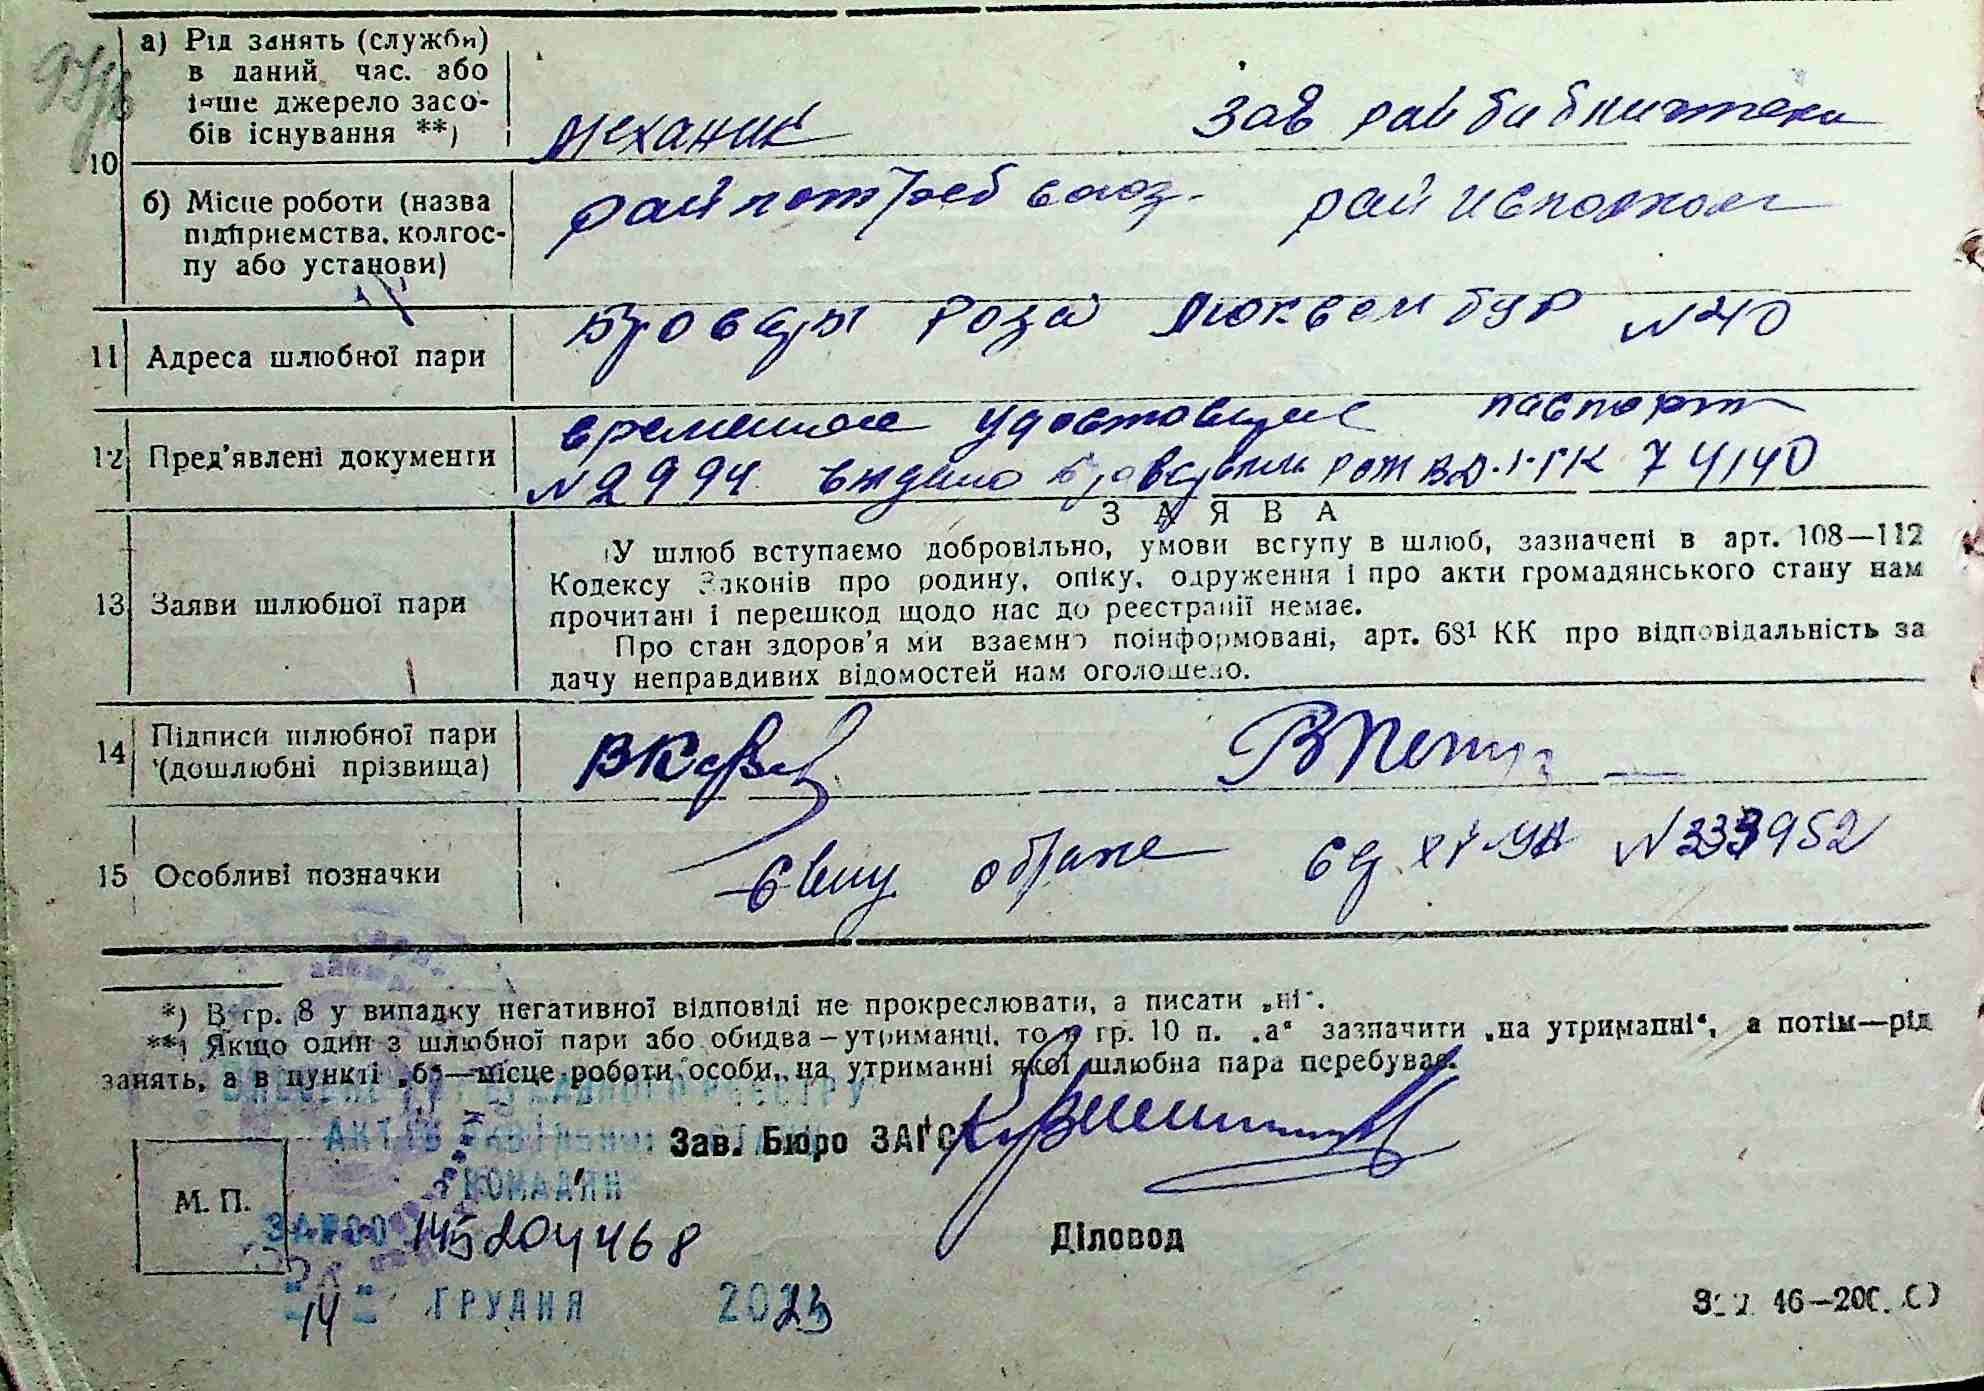 10 а) Рід занять (служби) в даний час. або інше джерело засобів існування **)
механик
зав рай библиотеки
б) Місце роботи (назва підприємства, колгоспу або установи)
райпотребсоюз
рай исполком
11 Адреса шлюбної пари
Бровары Роза Люксембур №40
12 Пред'явлені документи
временное паспорт
№2994 выдано 74140
13 Заяви шлюбної пари
ЗАЯВА
У шлюб вступаємо добровільно, умови вступу в шлюб, зазначені в арт. 108—112
Кодексу Законів про родину, опіку, одруження і про акти громадянського стану нам
прочитані і перешкод щодо нас до реєстрації немає.
Про стан здоров'я ми взаємно поінформовані, арт. 68¹ КК про відповідальність за
дачу неправдивих відомостей нам оголошено.
14 Підписи шлюбної пари (дошлюбні прізвища)
15 Особливі позначки
№ 333952
*) В гр. 8 у випадку негативної відповіді не прокреслювати, а писати „ні".
**) Якщо один з шлюбної пари або обидва—утриманці, то в гр. 10 п. „а" зазначити „на утриманні", а потім—рід
занять, а в пункті „б"—місце роботи особи, на утриманні якої шлюбна пара перебуває.
АКТІВ
Зав. Бюро ЗАГС
ГРОМАДЯН
М. П.
145204468
Діловод
14 ГРУДНЯ 2023
46—200.